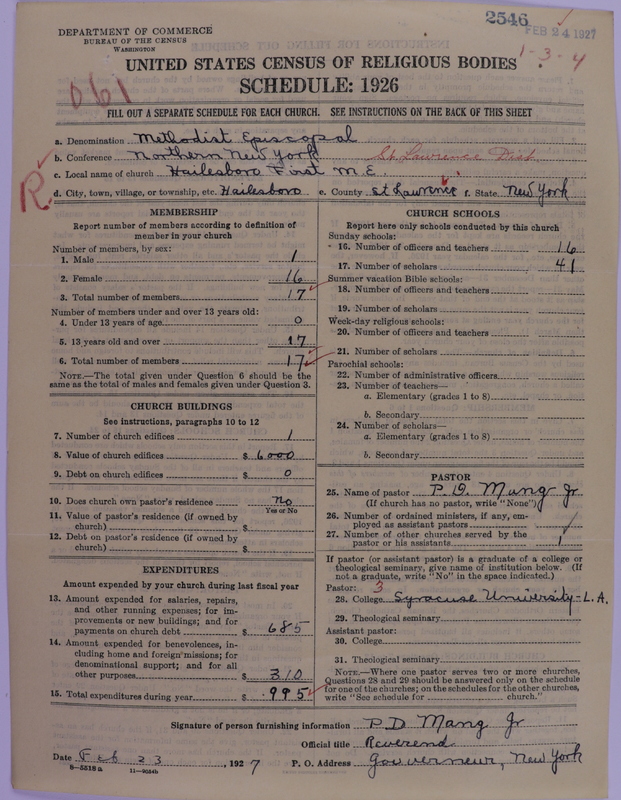 2546
FEB 24 1927
DEPARTMENT OF COMMERCE
BUREAU OF THE CENSUS
WASHINGTON
1-3-4
UNITED STATES CENSUS OF RELIGIOUS BODIES
SCHEDULE: 1926
061
FILL OUT A SEPARATE SCHEDULE FOR EACH CHURCH. SEE INSTRUCTIONS ON THE BACK OF THIS SHEET
a. Denomination Methodist Episcopal
b. Conference Northern New York St Lawrence Dist.
c. Local name of church Hailesboro First M.E.
R
d. City, town, village, or township, etc. Hailesboro e. County St Lawrence f. State New York
MEMBERSHIP
Report number of members according to definition of
member in your church
Number of members, by sex:
1. Male 1
2. Female 16
3. Total number of members 17
Number of members under and over 13 years old:
4. Under 13 years of age 0
5. 13 years old and over 17
6. Total number of members 17
NOTE.—The total given under Question 6 should be the
same as the total of males and females given under Question 3.
CHURCH BUILDINGS
See instructions, paragraphs 10 to 12
7. Number of church edifices 1
8. Value of church edifices $ 6000
9. Debt on church edifices $ 0
10. Does church own pastor's residence No
Yes or No
11. Value of pastor's residence (if owned by
church) $
12. Debt on pastor's residence (if owned by
church) $
EXPENDITURES
Amount expended by your church during last fiscal year
13. Amount expended for salaries, repairs,
and other running expenses; for im-
provements or new buildings; and for
payments on church debt $ 685
14. Amount expended for benevolences, in-
cluding home and foreign missions; for
denominational support; and for all
other purposes $ 310
15. Total expenditures during year $ 995
CHURCH SCHOOLS
Report here only schools conducted by this church
Sunday schools:
16. Number of officers and teachers 16
17. Number of scholars 41
Summer vacation Bible schools:
18. Number of officers and teachers
19. Number of scholars
Week-day religious schools:
20. Number of officers and teachers
21. Number of scholars
Parochial schools:
22. Number of administrative officers
23. Number of teachers—
a. Elementary (grades 1 to 8)
b. Secondary
24. Number of scholars—
a. Elementary (grades 1 to 8)
b. Secondary
PASTOR
25. Name of pastor P. D. Mang Jr
(If church has no pastor, write "None")
26. Number of ordained ministers, if any, em-
ployed as assistant pastors
27. Number of other churches served by the
pastor or his assistants 1
If pastor (or assistant pastor) is a graduate of a college or
theological seminary, give name of institution below. (If
not a graduate, write "No" in the space indicated.)
Pastor: 3
28. College Syracuse University - L.A.
29. Theological seminary
Assistant pastor:
30. College
31. Theological seminary
NOTE.—Where one pastor serves two or more churches,
Questions 28 and 29 should be answered only on the schedule
for one of the churches; on the schedules for the other churches,
write "See schedule for church."
Signature of person furnishing information P D Mang Jr
Official title Reverend
Date Feb 23, 1927 P. O. Address Gouverneur, New York
8-5518a 11-9054b